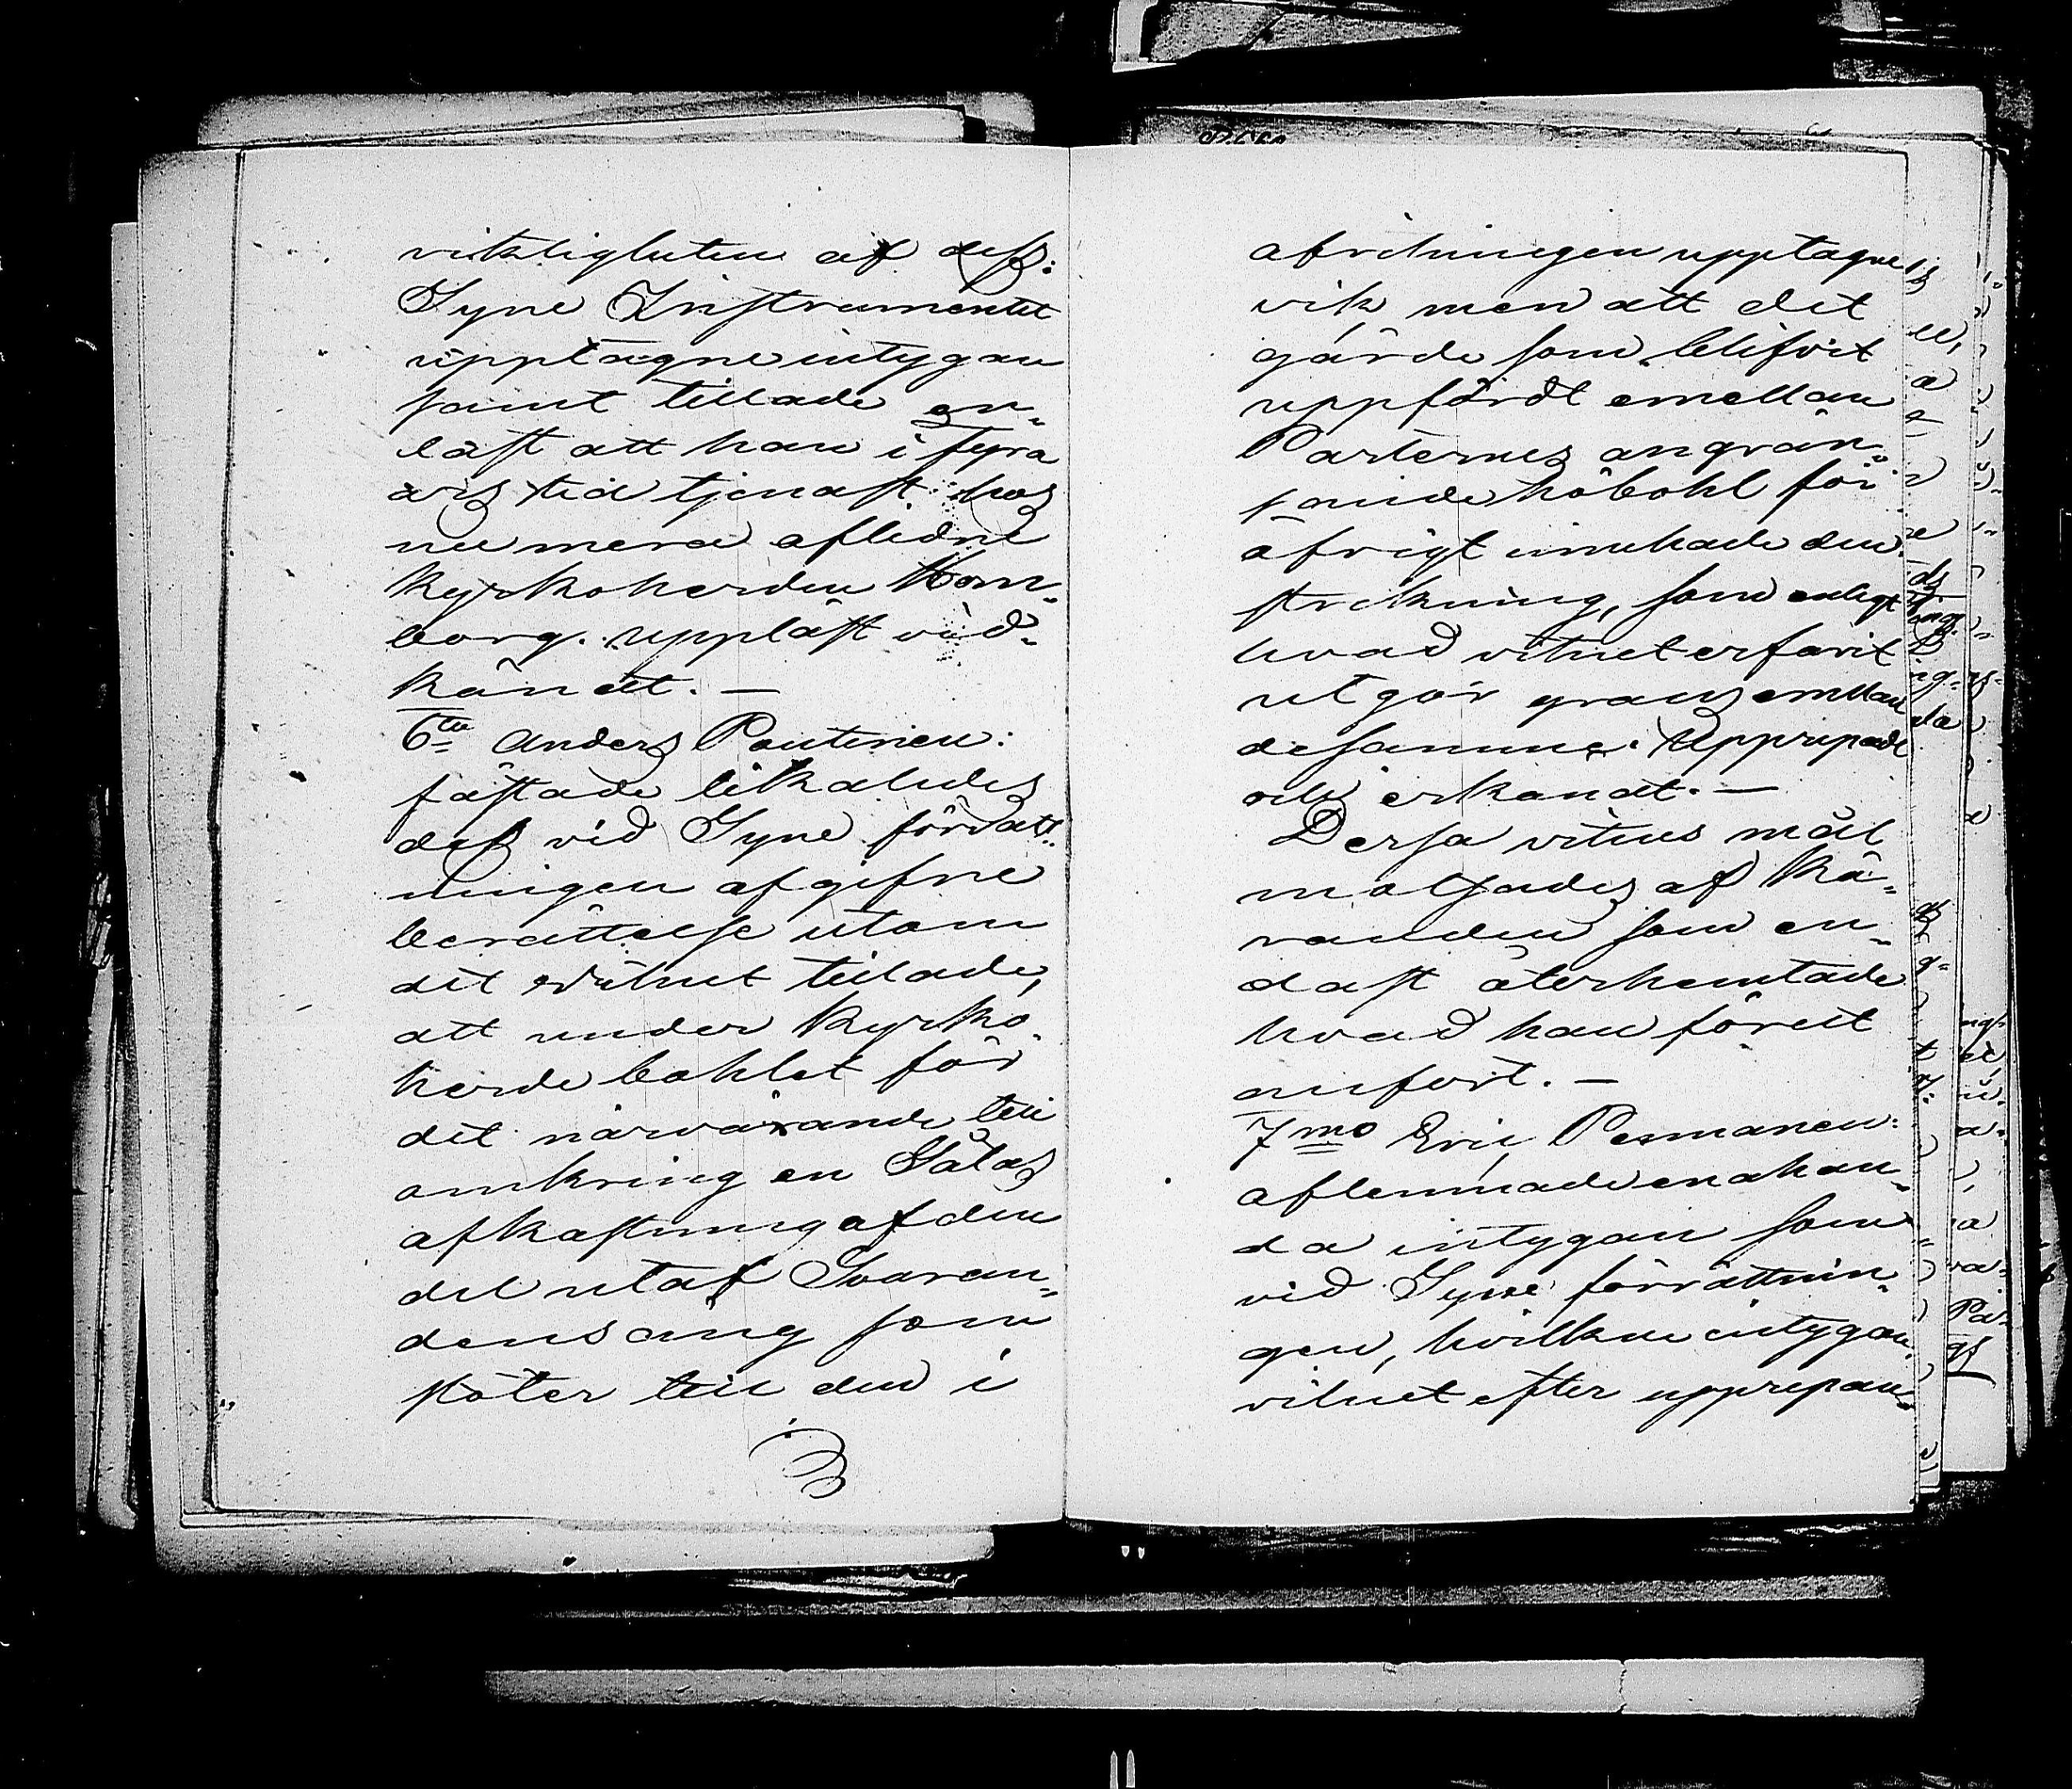 riktigheten af dess:
Syne Instrumentet
upptagne intygan
samt tillade en-
dast att han i fyra
års tid tjenast hos
nu mera aflidne
Kyrkoherden Hom-
borg. Uppläst ved-
kändt. —
6to Anders Pontinen:
fästade likaledes
dess vid Syne förrätt-
ningen afgifne
berättelse utom
det vitnet tillade,
att under Kyrko-
herde bohlet för
det närvarande till
omkring en Såtas
afkastning af den
del utaf Svaran-
dens äng som
stöter till den i
afritningen upptagne
vik men att det
gärde som blifvit
uppfördt emellan
Parternes angrän-
sande höbohl för
öfrigt innehade den
sträckning, som enligt
hvad vitnet erfarit
utgör gräns emellan
desamma. Upprepade
och erkändt. —
Dessa vitnes mål
motsades af Kä-
randen som en-
dast återhemtade
hvad han förut
anfört. —
7mo Eric Pesmanen:
aflemnade enahan-
da intygan som
vid Syne förrättnin-
gen, hvilken intygan
vitnet efter upprepan-